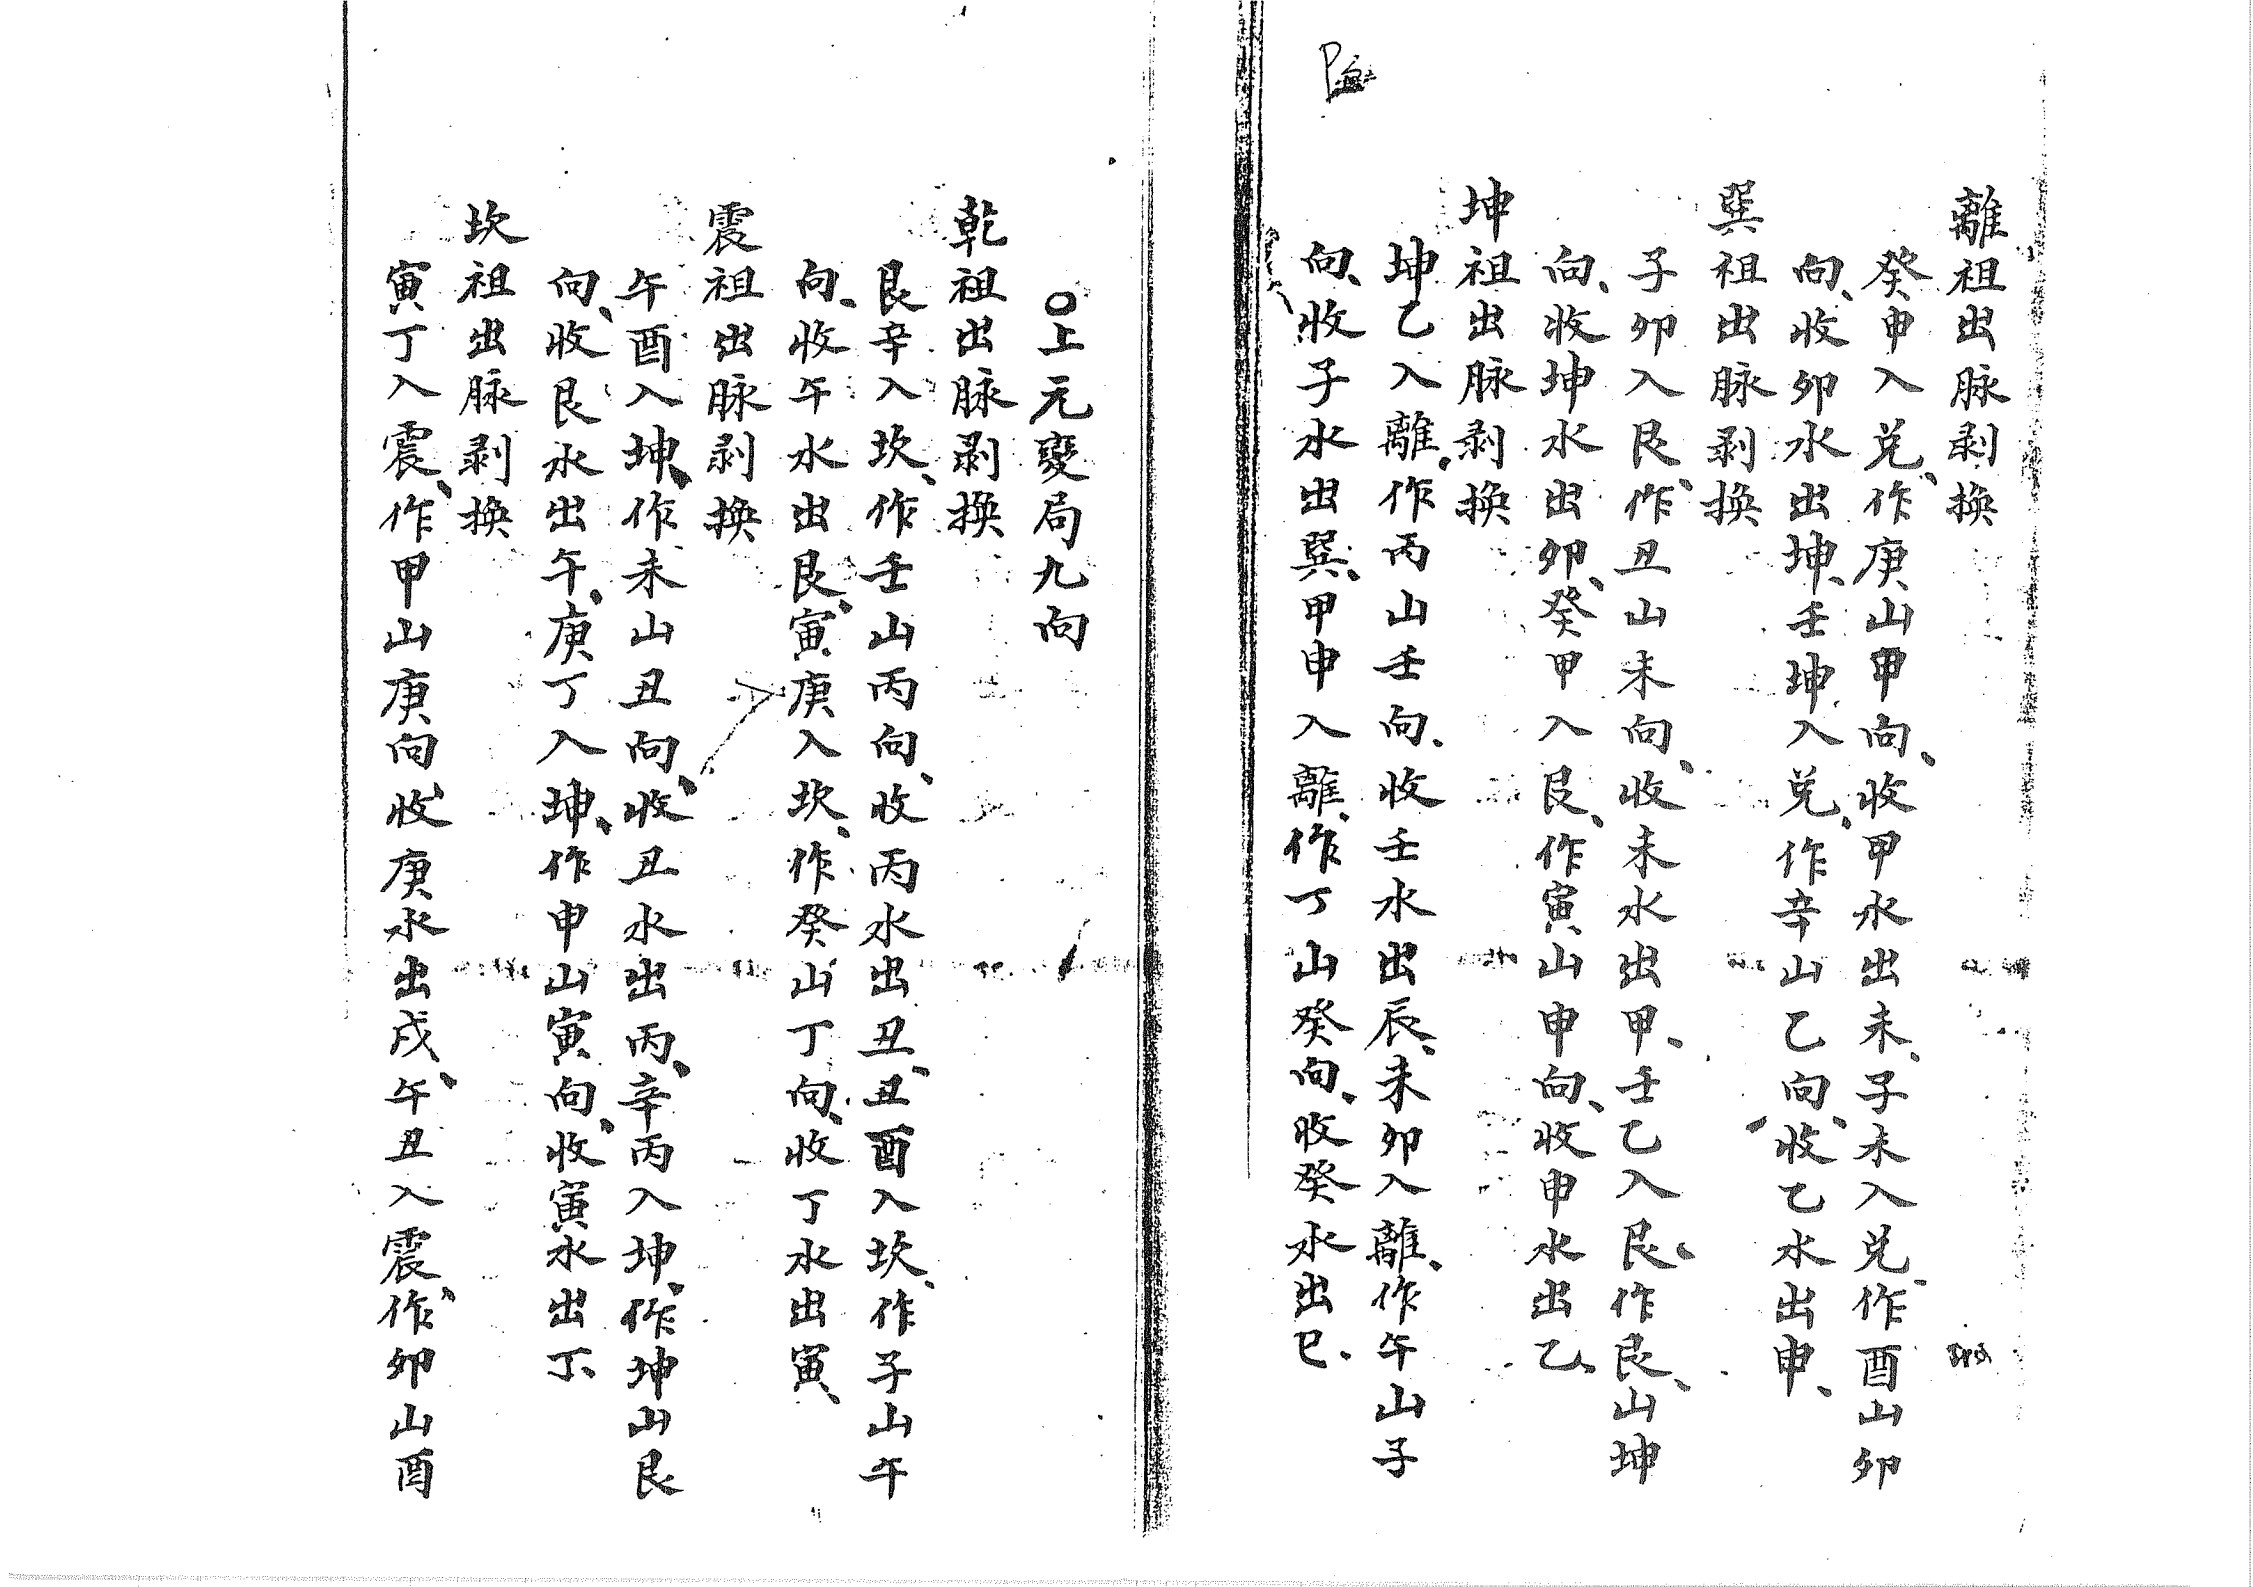 離祖出脉剥換
癸申入兌、作庚山甲向、收甲水出未、子未入兌、作酉山卯
向、收卯水出坤、壬坤入兌、作辛山乙向、收乙水出申、
巽祖出脉剥換
子卯入艮、作丑山未向、收未水出甲、壬乙入艮、作艮山坤
向、收坤水出卯、癸甲入艮、作寅山申向、收申水出乙、
坤祖出脉剥換
坤乙入離、作丙山壬向、收壬水出辰、未卯入離、作午山子
向、收子水出巽、甲申入離、作丁山癸向、收癸水出巳、
○上元變局九向
乾祖出脉剥換
艮辛入坎、作壬山丙向、收丙水出丑、丑酉入坎、作子山午
向、收午水出艮、寅庚入坎、作癸山丁向、收丁水出寅、
震祖出脉剥換
午酉入坤、作未山丑向、收丑水出丙、辛丙入坤、作坤山艮
向、收艮水出午、庚丁入坤、作申山寅向、收寅水出丁、
坎祖出脉剥換
寅丁入震、作甲山庚向、收庚水出戍、午丑入震、作卯山酉